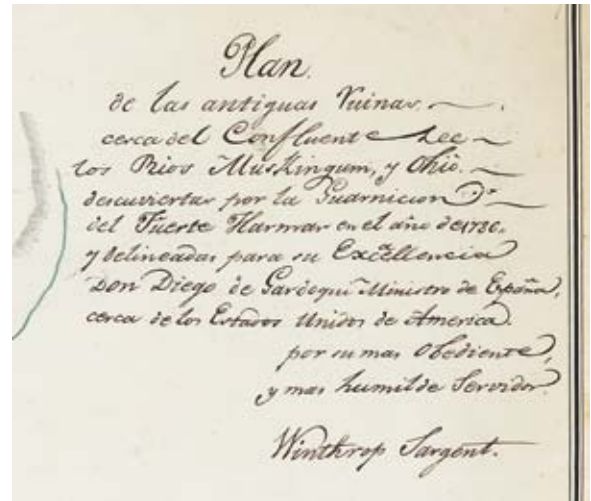 Plan.
de las antiguas Ruinas.
cerca del Confluente dee
los Rios Muskingum, y Ohio.
descuviertas por la Guarnicion
del Fuerte Harmar en el año de 1786.
y delineadas para su Excellencia
Don Diego de Gardoqui Ministro de España,
cerca de los Estados Unidos de America.
por su mas Obediente,
y mas humilde Servidor.
Winthrop Sargent.